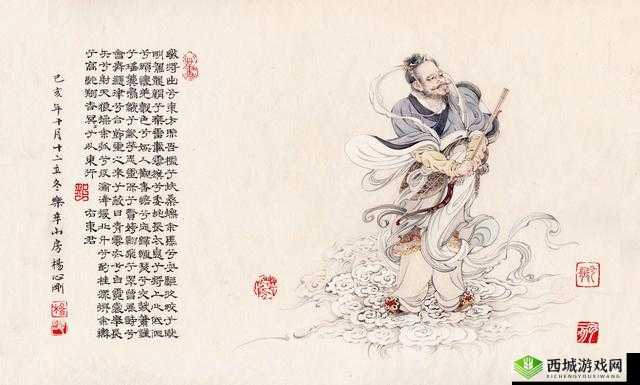 暾將出兮東方照吾檻兮扶桑撫余馬兮安驅夜皎皎兮既
明駕龍輈兮乘雷載雲旗兮委蛇長太息兮將上心低徊
兮顧懷羌聲色兮娛人觀者憺兮忘歸緪瑟兮交鼓簫鐘
兮瑤簴鳴篪兮吹竽思靈保兮賢姱翾飛兮翠曾展詩兮
會舞應律兮合節靈之來兮蔽日青雲衣兮白霓裳舉長
矢兮射天狼操余弧兮反淪降援北斗兮酌桂漿撰余轡
兮高駝翔杳冥冥兮以東行
右東君
己亥年十月十二立冬樂山房楊心剛
西城游戏网
XICHENGYOUXIWANG